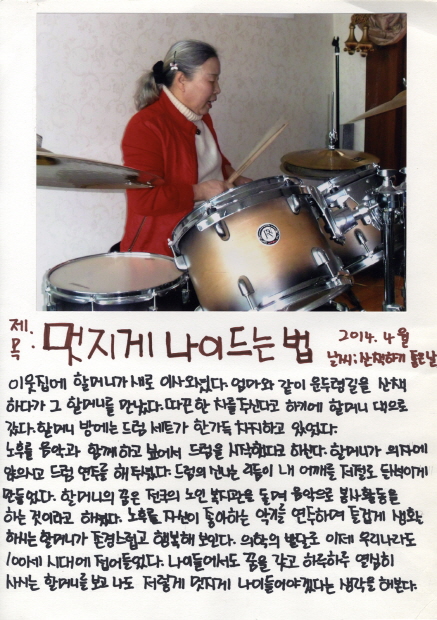 제목: 멋지게 나이드는 법
2014. 4월
날씨: 산책하기 좋은날
이웃집에 할머니가 새로 이사와섰다. 엄마와 같이 운동길을 산책
하다가 그 할머니를 만났다. 따끈한 차를 주신다고 하기에 할머니 댁으로
갔다. 할머니 방에는 드럼 세트가 한가득 차지하고 있었다.
노후를 음악과 함께하고 싶어서 드럼을 시작했다고 하신다. 할머니가 의자에
앉으시고 드럼 연주를 해 주셨다. 드럼의 신나는 리듬이 내 어깨를 저절로 들썩이게
만들었다. 할머니의 꿈은 전국의 노인 복지관을 돌며 음악으로 봉사활동을
하는 것이라고 하셨다. 노후를 자신이 좋아하는 악기를 연주하며 즐겁게 생활
하시는 할머니가 존경스럽고 행복해 보인다. 의학의 발달로 이제 우리나라도
100세 시대에 접어들었다. 나이들어서도 꿈을 갖고 하루하루 열심히
사시는 할머니를 보고 나도 저렇게 멋지게 나이들어야겠다는 생각을 해본다.